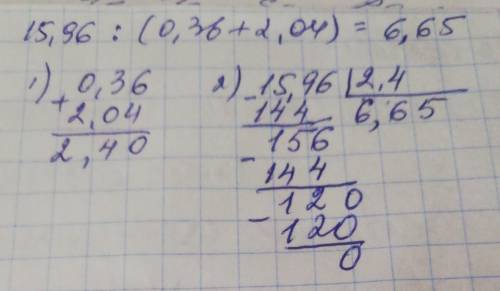 15,96 : (0,36+2,04) = 6,65
1) 0,36
+ 2,04
2,40
2) - 15,96 | 2,4
144 6,65
156
- 144
120
- 120
0